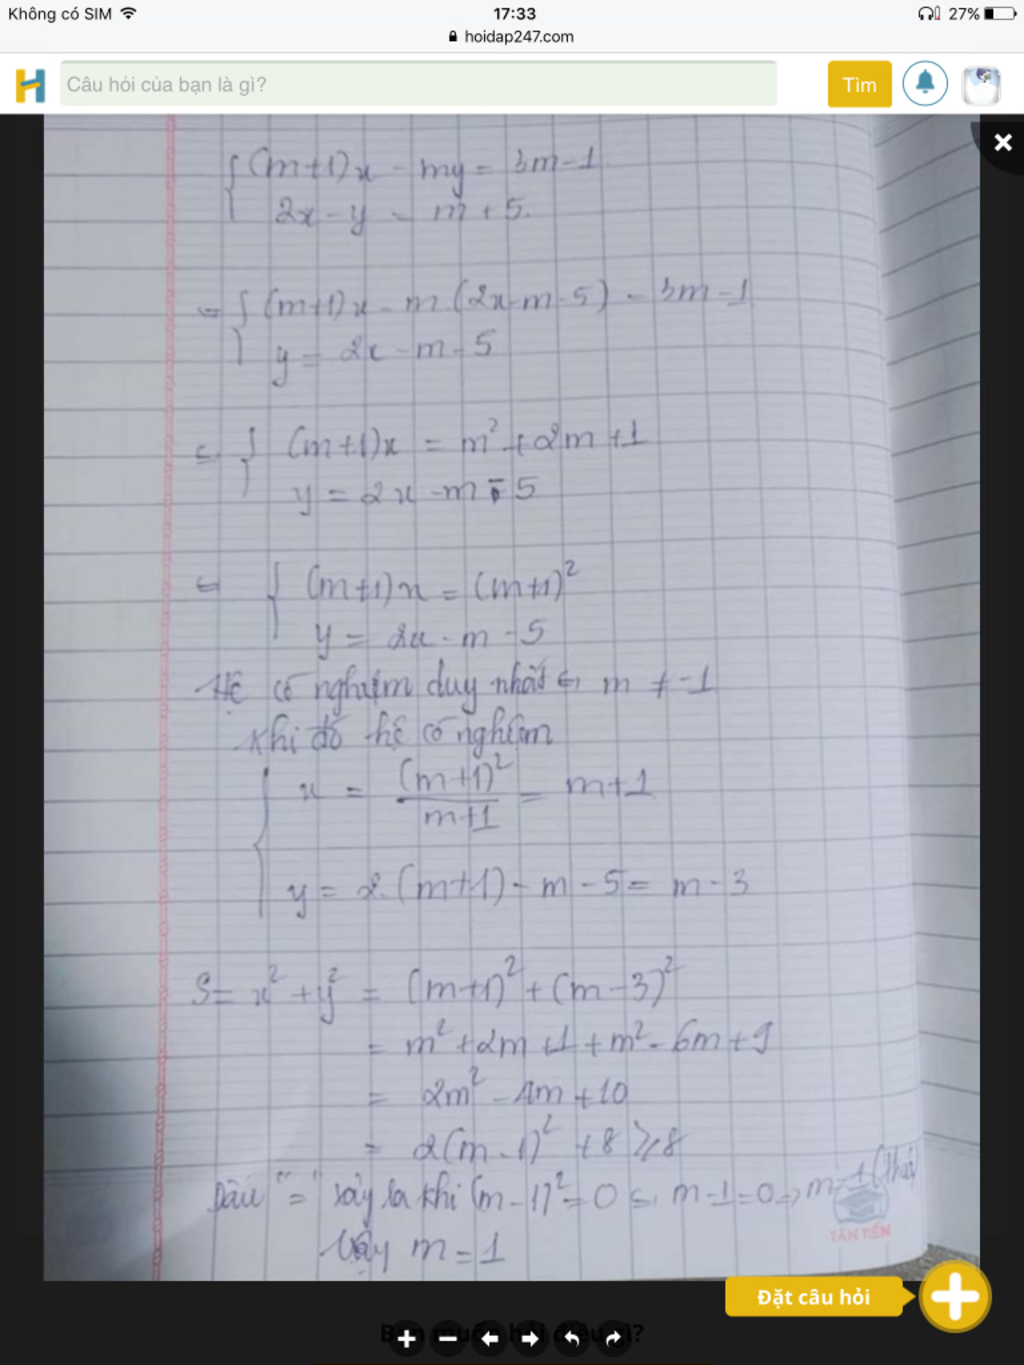 Không có SIM 17:33 27%
hoidap247.com
H Câu hỏi của bạn là gì? Tìm
(m+1)x - my = 3m-1
2x - y = m + 5
(m+1)x - m.(2x-m-5) = 3m-1
y = 2x - m - 5
(m+1)x = m² + 2m + 1
y = 2x - m - 5
(m+1)x = (m+1)²
y = 2x - m - 5
Hệ có nghiệm duy nhất ⇔ m ≠ -1
Khi đó hệ có nghiệm
x = (m+1)²/m+1 = m+1
y = 2.(m+1) - m - 5 = m - 3
S = x² + y² = (m+1)² + (m-3)²
= m² + 2m + 1 + m² - 6m + 9
= 2m² - 4m + 10
= 2(m-1)² + 8 ≥ 8
Dấu "=" xảy ra khi (m-1)² = 0 ⇔ m-1 = 0 ⇒ m = 1 (thỏa)
TÂN TIẾN
Vậy m = 1
Đặt câu hỏi